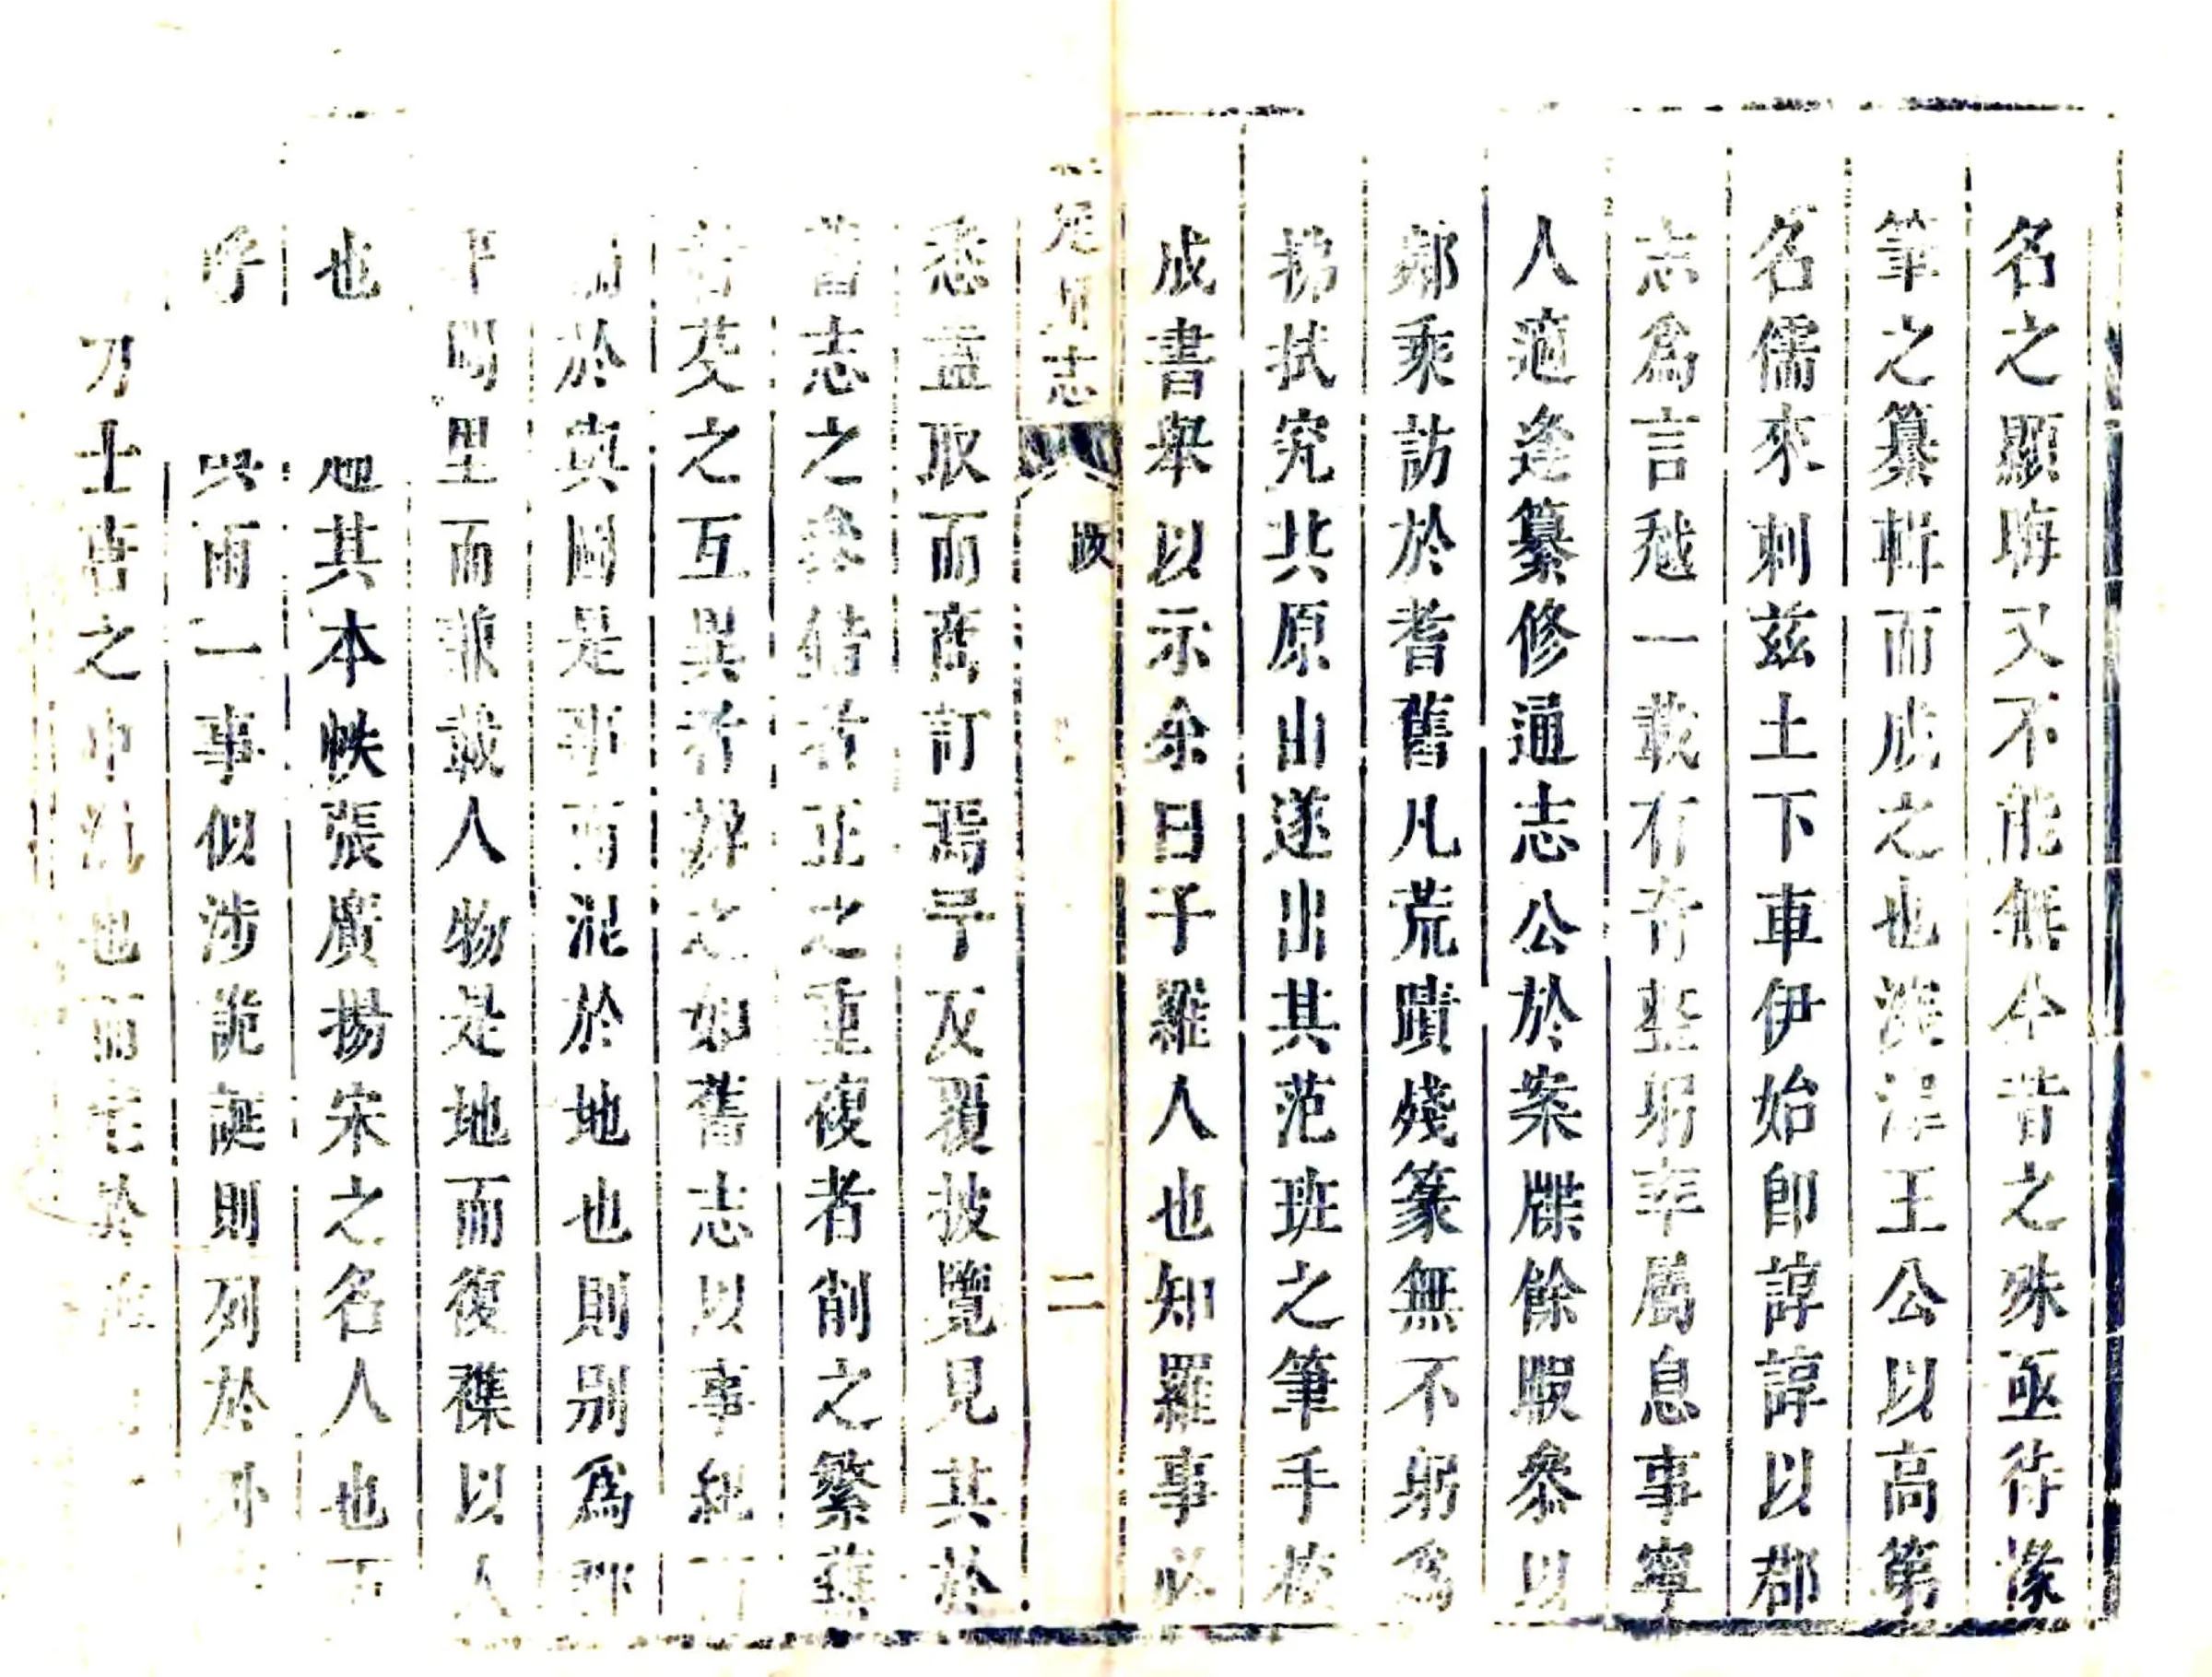 名之顯晦又不能無今昔之殊亟待掾
筆之纂輯而成之也漢淳王公以高第
名儒來刺茲土下車伊始卽諄諄以郡
志爲言越一載有奇堅躬率屬息事寧
人適逢纂修通志公於案牘餘暇叅以
鄰乘訪於耆舊凡荒蹟殘篆無不躬爲
拂拭究其原出遂出其范班之筆手
成書舉以示余曰子羅人也知羅事必
志
跋
二
悉盍取而商訂焉予反覆披覽見其於
舊志之者正之重複者削之繁蕪
者芟之互異者辨之如舊志以事紀
於輿圖是事而混於地也則别爲
里而兼載人物是地而復襍以人
也其本帙張廣揚宋之名人也而
呼雨一事似涉詭誕則列於外
刀士之也而於